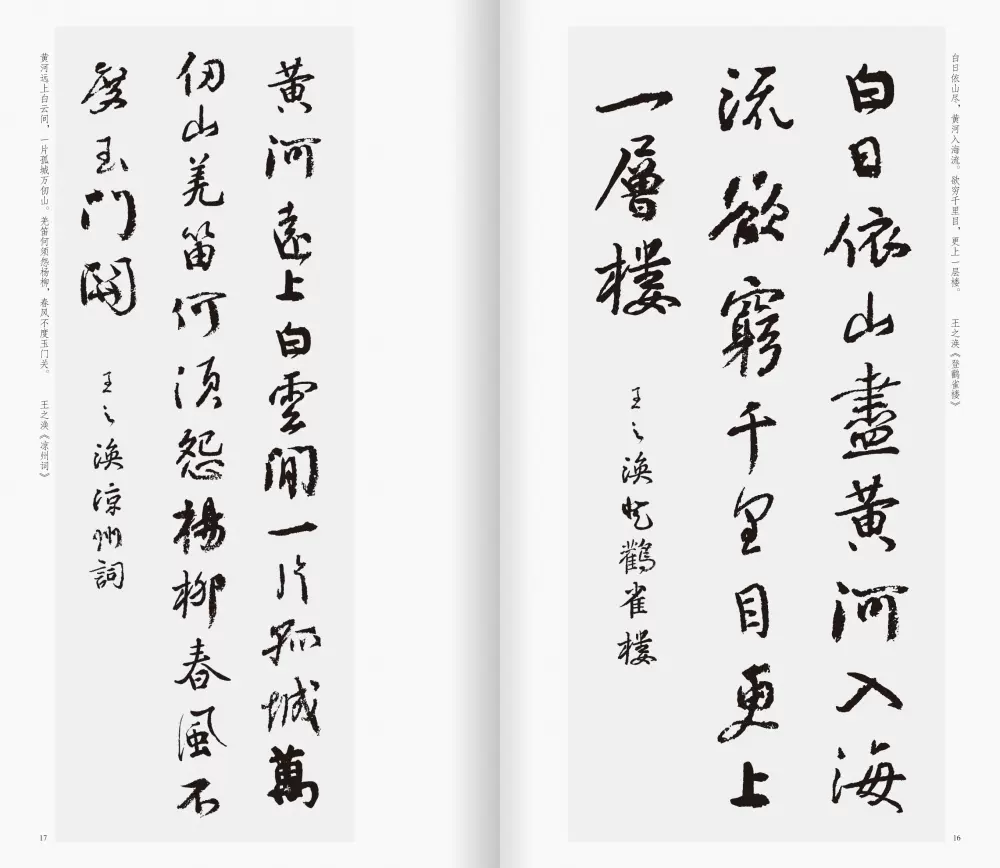 白日依山尽，黄河入海流。欲穷千里目，更上一层楼。 王之涣《登鹳雀楼》
白日依山盡黄河入海
流欲窮千里目更上
一層樓 王之涣登鸛雀樓
16
黄河遠上白雲間一片孤城萬
仞山羌笛何須怨楊柳春風不
度玉門關 王之涣凉州詞
黄河远上白云间，一片孤城万仞山。羌笛何须怨杨柳，春风不度玉门关。 王之涣《凉州词》
17